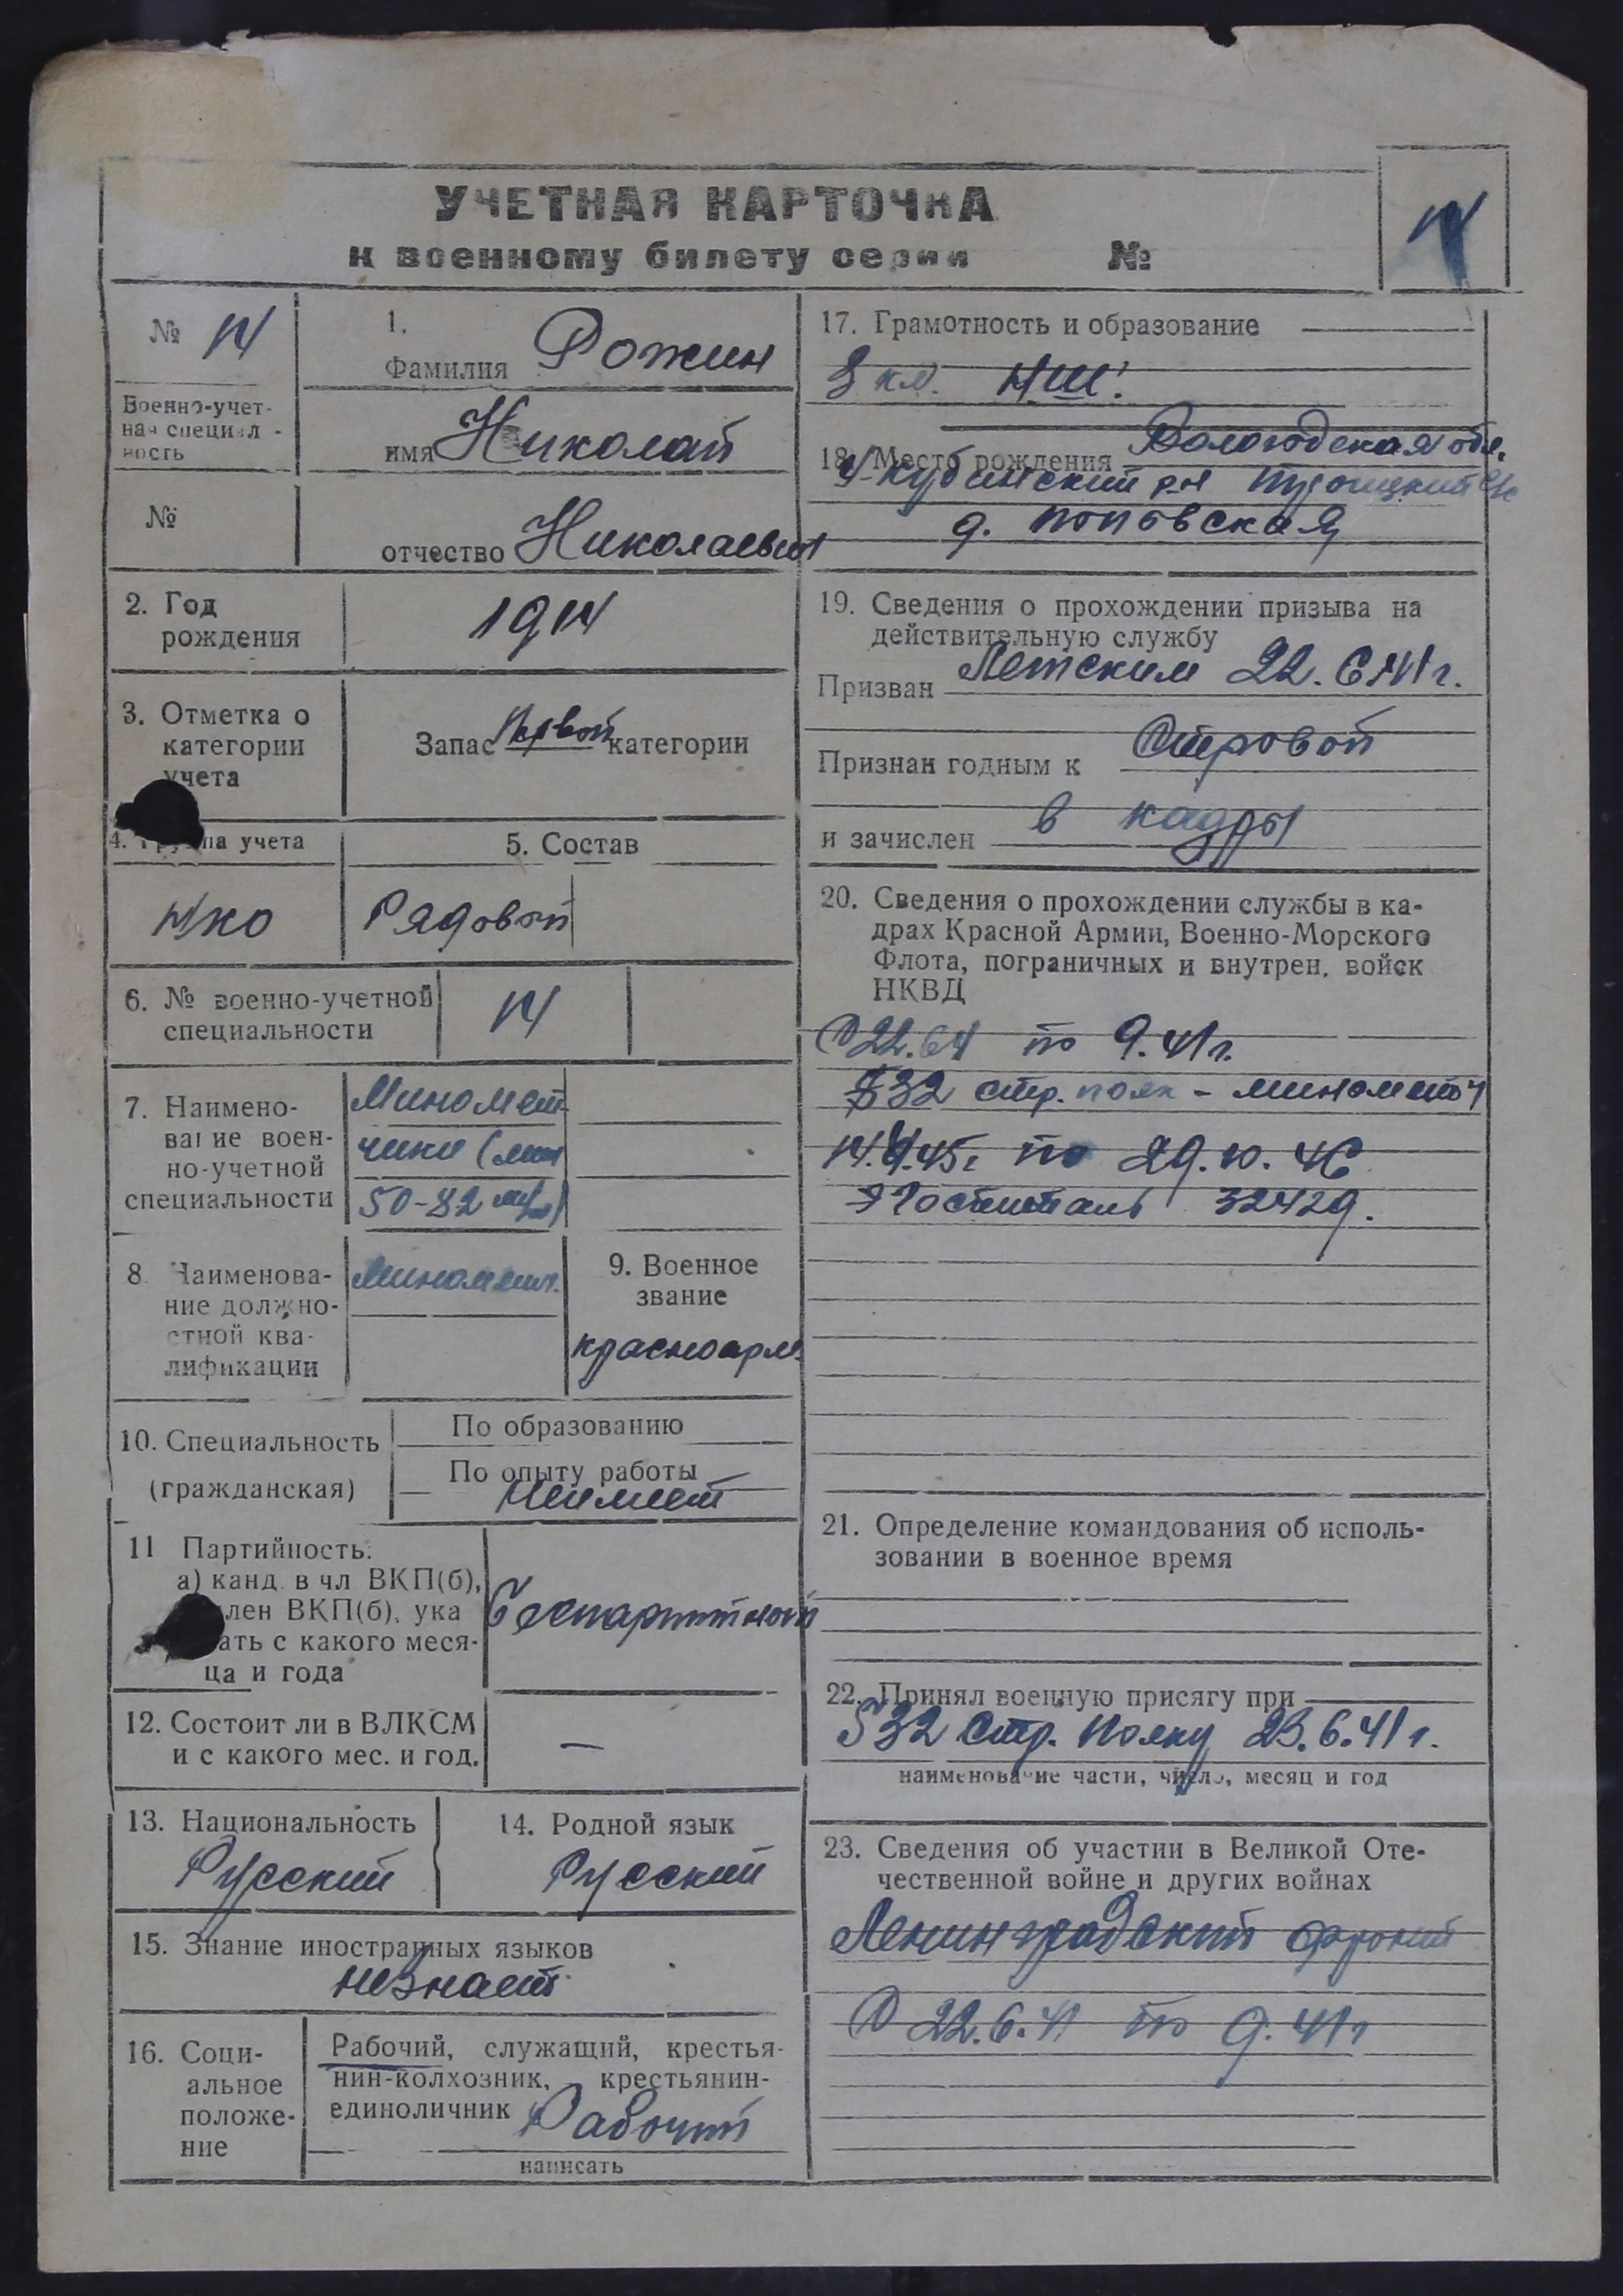 УЧЕТНАЯ КАРТОЧКА
к военному билету серии №
14
№ 14
Военно-учет-
ная специал-
ность
№
1.
Фамилия Рожин
имя Николай
отчество Николаевич
2. Год
рождения
1914
3. Отметка о
категории
учета
Запас Первой категории
4. Группа учета
НКО
5. Состав
Рядовой
6. № военно-учетной
специальности
14
7. Наимено-
вание воен-
но-учетной
специальности
Миномет
чики (мин
50-82 м/м)
8. Наименова-
ние должно-
стной ква-
лификации
Минометч.
9. Военное
звание
красноарм.
10. Специальность
(гражданская)
По образованию
По опыту работы
Неимеет
11 Партийность:
а) канд. в чл ВКП(б),
член ВКП(б), ука
зать с какого меся-
ца и года
Беспартийный
12. Состоит ли в ВЛКСМ
и с какого мес. и год.
—
13. Национальность
Русский
14. Родной язык
Русский
15. Знание иностранных языков
незнает
16. Соци-
альное
положе-
ние
Рабочий, служащий, крестья-
нин-колхозник, крестьянин-
единоличник Рабочий
написать
17. Грамотность и образование
3 кл. НШ.
18. Место рождения Вологодская обл.
У-Кубинский р-н с/с
д. Поповская
19. Сведения о прохождении призыва на
действительную службу
Призван Летским 22.6.41г.
Признан годным к Строевой
и зачислен в кадры
20. Сведения о прохождении службы в ка-
драх Красной Армии, Военно-Морского
Флота, пограничных и внутрен. войск
НКВД
С 22.6.41 по 9.41г.
532 стр. полк - минометч
14.4.45г по 29.10.46
Эгоспиталь 32429.
21. Определение командования об исполь-
зовании в военное время
22. Принял военную присягу при
532 Стр. Полку 23.6.41г.
наименование части, число, месяц и год
23. Сведения об участии в Великой Оте-
чественной войне и других войнах
Ленинградский фронт
С 22.6.41 по 9.41г